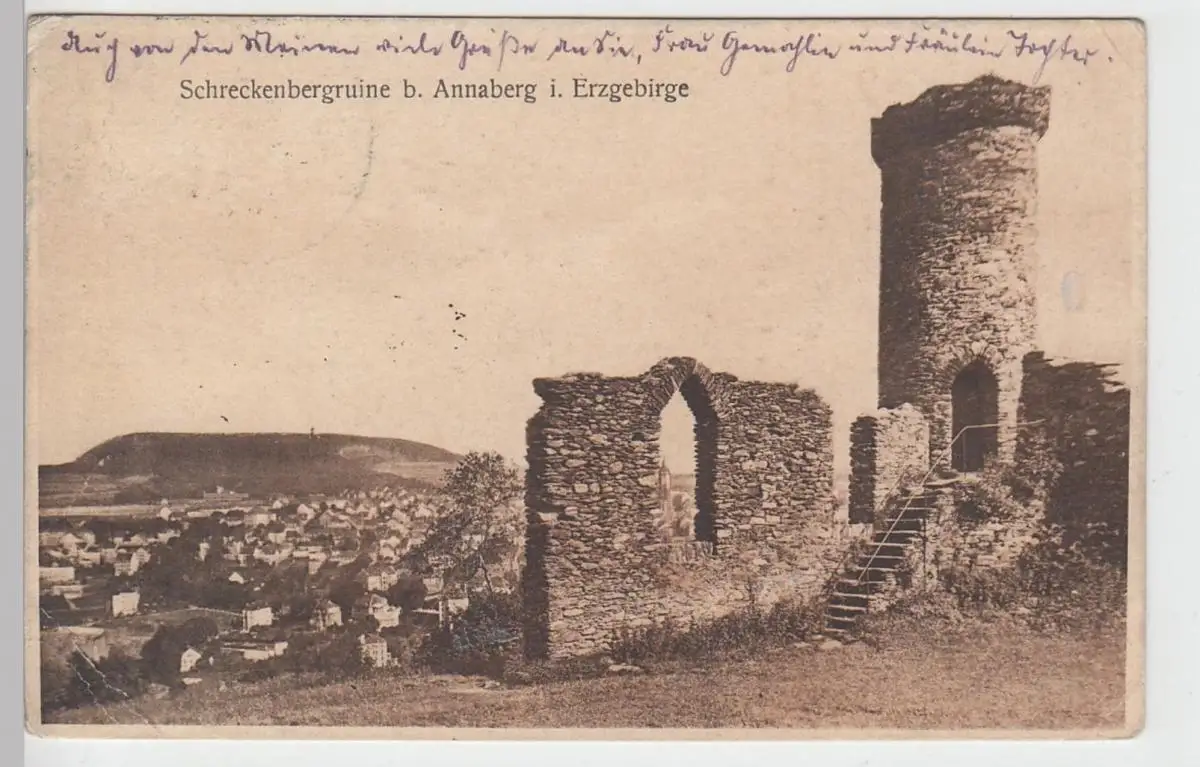 Auch von den Meinen viele Grüße an Sie, Frau Gemahlin und Fräulein Tochter.
Schreckenbergruine b. Annaberg i. Erzgebirge